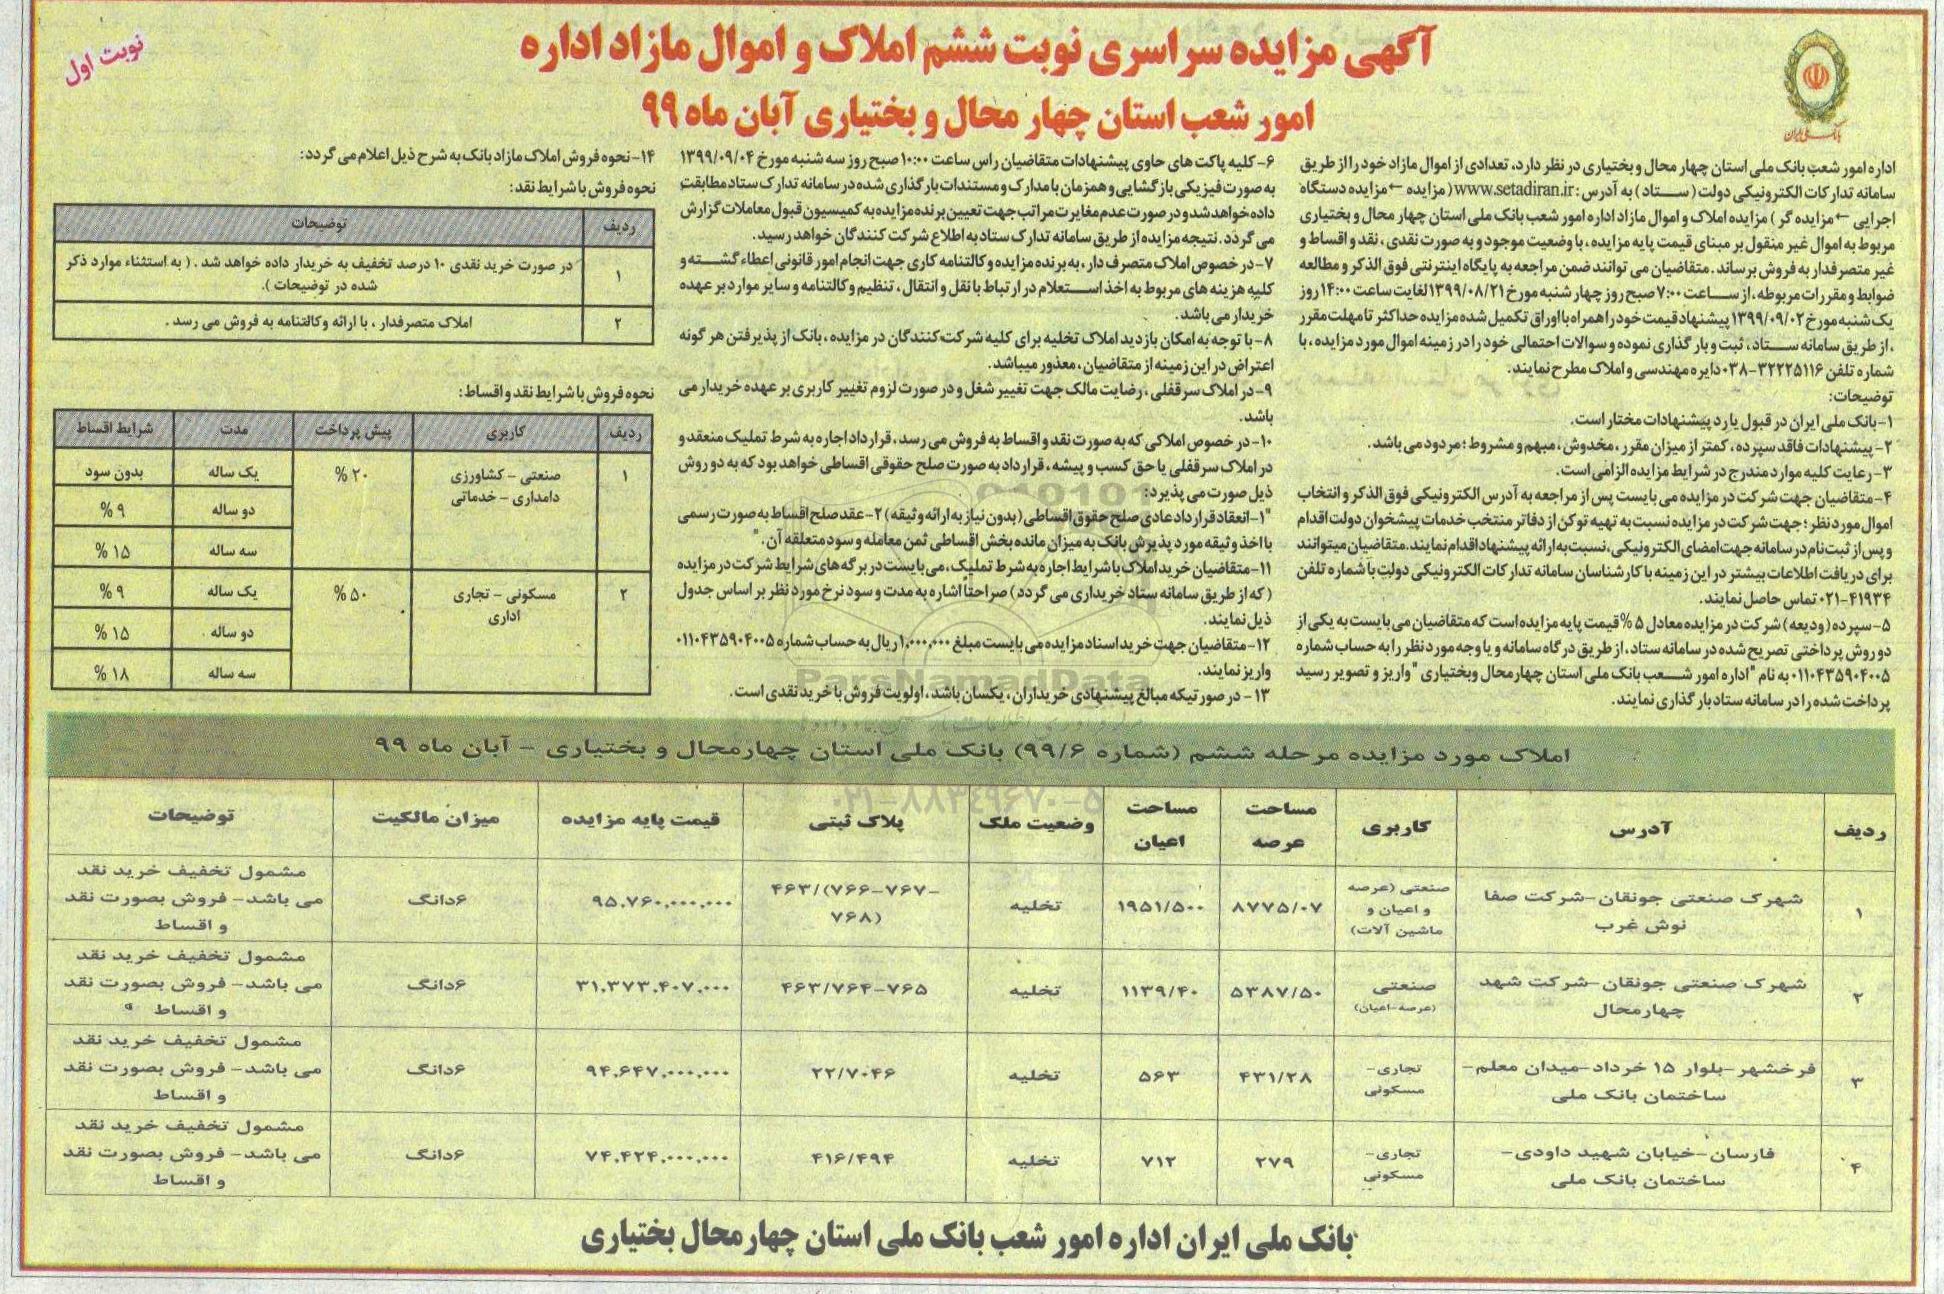 آگهی مزایده سراسری نوبت ششم املاک و اموال مازاد اداره
امور شعب استان چهار محال و بختیاری آبان ماه ۹۹
نوبت اول
بانک ملی ایران
اداره امور شعب بانک ملی استان چهار محال و بختیاری در نظر دارد، تعدادی از اموال مازاد خود را از طریق
سامانه تدارکات الکترونیکی دولت (ستاد) به آدرس: www.setadiran.ir (مزایده ←مزایده دستگاه
اجرایی ←مزایده گر) مزایده املاک و اموال مازاد اداره امور شعب بانک ملی استان چهار محال و بختیاری
مربوط به اموال غیر منقول بر مبنای قیمت پایه مزایده، با وضعیت موجود و به صورت نقدی، نقد و اقساط و
غیر متصرفدار به فروش برساند. متقاضیان می توانند ضمن مراجعه به پایگاه اینترنتی فوق الذکر و مطالعه
ضوابط و مقررات مربوطه، از ساعت ۷:۰۰ صبح روز چهارشنبه مورخ ۱۳۹۹/۰۸/۲۱ لغایت ساعت ۱۴:۰۰ روز
یک شنبه مورخ ۱۳۹۹/۰۹/۰۲ پیشنهاد قیمت خود را همراه با اوراق تکمیل شده مزایده حداکثر تا مهلت مقرر
، از طریق سامانه ستاد، ثبت و بارگذاری نموده و سوالات احتمالی خود را در زمینه اموال مورد مزایده، با
شماره تلفن ۳۲۲۲۵۱۱۶-۰۳۸ دایره مهندسی و املاک مطرح نمایند.
توضیحات:
۱-بانک ملی ایران در قبول یا رد پیشنهادات مختار است.
۲-پیشنهادات فاقد سپرده، کمتر از میزان مقرر، مخدوش، مبهم و مشروط؛ مردود می باشد.
۳-رعایت کلیه موارد مندرج در شرایط مزایده الزامی است.
۴-متقاضیان جهت شرکت در مزایده می بایست پس از مراجعه به آدرس الکترونیکی فوق الذکر و انتخاب
اموال مورد نظر؛ جهت شرکت در مزایده نسبت به تهیه توکن از دفاتر منتخب خدمات پیشخوان دولت اقدام
و پس از ثبت نام در سامانه جهت امضای الکترونیکی، نسبت به ارائه پیشنهاد اقدام نمایند. متقاضیان میتوانند
برای دریافت اطلاعات بیشتر در این زمینه با کارشناسان سامانه تدارکات الکترونیکی دولت با شماره تلفن
۰۲۱-۴۱۹۳۴ تماس حاصل نمایند.
۵-سپرده (ودیعه) شرکت در مزایده معادل ۵٪ قیمت پایه مزایده است که متقاضیان می بایست به یکی از
دو روش پرداختی تصریح شده در سامانه ستاد، از طریق درگاه سامانه و یا وجه مورد نظر را به حساب شماره
۰۱۱۰۴۳۵۹۰۴۰۰۵ به نام "اداره امور شعب بانک ملی استان چهارمحال وبختیاری" واریز و تصویر رسید
پرداخت شده را در سامانه ستاد بارگذاری نمایند.
۶-کلیه پاکت های حاوی پیشنهادات متقاضیان راس ساعت ۱۰:۰۰ صبح روز سه شنبه مورخ ۱۳۹۹/۰۹/۰۴
به صورت فیزیکی بازگشایی و همزمان با مدارک و مستندات بارگذاری شده در سامانه تدارک ستاد مطابقت
داده خواهد شد و در صورت عدم مغایرت مراتب جهت تعیین برنده مزایده به کمیسیون قبول معاملات گزارش
می گردد. نتیجه مزایده از طریق سامانه تدارک ستاد به اطلاع شرکت کنندگان خواهد رسید.
۷-در خصوص املاک متصرف دار، به برنده مزایده وکالتنامه کاری جهت انجام امور قانونی اعطاء گشته و
کلیه هزینه های مربوط به اخذ استعلام در ارتباط با نقل و انتقال، تنظیم وکالتنامه و سایر موارد بر عهده
خریدار می باشد.
۸-با توجه به امکان بازدید املاک تخلیه برای کلیه شرکت کنندگان در مزایده، بانک از پذیرفتن هر گونه
اعتراض در این زمینه از متقاضیان، معذور میباشد.
۹-در املاک سرقفلی، رضایت مالک جهت تغییر شغل و در صورت لزوم تغییر کاربری بر عهده خریدار می
باشد.
۱۰-در خصوص املاکی که به صورت نقد و اقساط به فروش می رسد، قرارداد اجاره به شرط تملیک منعقد و
در املاک سرقفلی یا حق کسب و پیشه، قرارداد به صورت صلح حقوقی اقساطی خواهد بود که به دو روش
ذیل صورت می پذیرد:
"۱-انعقاد قرارداد عادی صلح حقوق اقساطی (بدون نیاز به ارائه وثیقه) ۲-عقد صلح اقساط به صورت رسمی
با اخذ وثیقه مورد پذیرش بانک به میزان مانده بخش اقساطی ثمن معامله و سود متعلقه آن."
۱۱-متقاضیان خرید املاک با شرایط اجاره به شرط تملیک، می بایست در برگه های شرایط شرکت در مزایده
(که از طریق سامانه ستاد خریداری می گردد) صراحتاً اشاره به مدت و سود نرخ مورد نظر بر اساس جدول
ذیل نمایند.
۱۲-متقاضیان جهت خرید اسناد مزایده می بایست مبلغ ۱،۰۰۰،۰۰۰ ریال به حساب شماره ۰۱۱۰۴۳۵۹۰۴۰۰۵
واریز نمایند.
۱۳-در صورتیکه مبالغ پیشنهادی خریداران، یکسان باشد، اولویت فروش با خرید نقدی است.
۱۴-نحوه فروش املاک مازاد بانک به شرح ذیل اعلام می گردد:
نحوه فروش با شرایط نقد:
ردیف توضیحات
۱ در صورت خرید نقدی ۱۰ درصد تخفیف به خریدار داده خواهد شد. (به استثناء موارد ذکر
شده در توضیحات).
۲ املاک متصرفدار، با ارائه وکالتنامه به فروش می رسد.
نحوه فروش با شرایط نقد و اقساط:
ردیف کاربری پیش پرداخت مدت شرایط اقساط
۱ صنعتی - کشاورزی ۲۰ % یک ساله بدون سود
دامداری - خدماتی
دو ساله ۹ %
سه ساله ۱۵ %
۲ مسکونی - تجاری ۵۰ % یک ساله ۹ %
اداری
دو ساله ۱۵ %
سه ساله ۱۸ %
املاک مورد مزایده مرحله ششم (شماره ۹۹/۶) بانک ملی استان چهارمحال و بختیاری - آبان ماه ۹۹
ParsNamadData
۰۲۱-۸۸۳۴۹۶۷۰-۵
ردیف آدرس کاربری مساحت عرصه مساحت اعیان وضعیت ملک پلاک ثبتی قیمت پایه مزایده میزان مالکیت توضیحات
۱ شهرک صنعتی جونقان-شرکت صفا نوش غرب صنعتی (عرصه و اعیان و ماشین آلات) ۸۷۷۵/۰۷ ۱۹۵۱/۵۰۰ تخلیه ۴۶۳/(۷۶۶-۷۶۷-۷۶۸) ۹۵.۷۶۰.۰۰۰.۰۰۰ ۶دانگ مشمول تخفیف خرید نقد می باشد- فروش بصورت نقد و اقساط
۲ شهرک صنعتی جونقان-شرکت شهد چهارمحال صنعتی (عرصه-اعیان) ۵۳۸۷/۵۰ ۱۱۳۹/۴۰ تخلیه ۴۶۳/۷۶۴-۷۶۵ ۳۱.۳۷۳.۴۰۷.۰۰۰ ۶دانگ مشمول تخفیف خرید نقد می باشد- فروش بصورت نقد و اقساط
۳ فرخشهر-بلوار ۱۵ خرداد-میدان معلم-ساختمان بانک ملی تجاری-مسکونی ۴۳۱/۲۸ ۵۶۳ تخلیه ۲۲/۷۰۴۶ ۹۴.۶۴۷.۰۰۰.۰۰۰ ۶دانگ مشمول تخفیف خرید نقد می باشد- فروش بصورت نقد و اقساط
۴ فارسان-خیابان شهید داودی-ساختمان بانک ملی تجاری-مسکونی ۲۷۹ ۷۱۲ تخلیه ۴۱۶/۴۹۴ ۷۴.۴۲۴.۰۰۰.۰۰۰ ۶دانگ مشمول تخفیف خرید نقد می باشد- فروش بصورت نقد و اقساط
بانک ملی ایران اداره امور شعب بانک ملی استان چهارمحال بختیاری